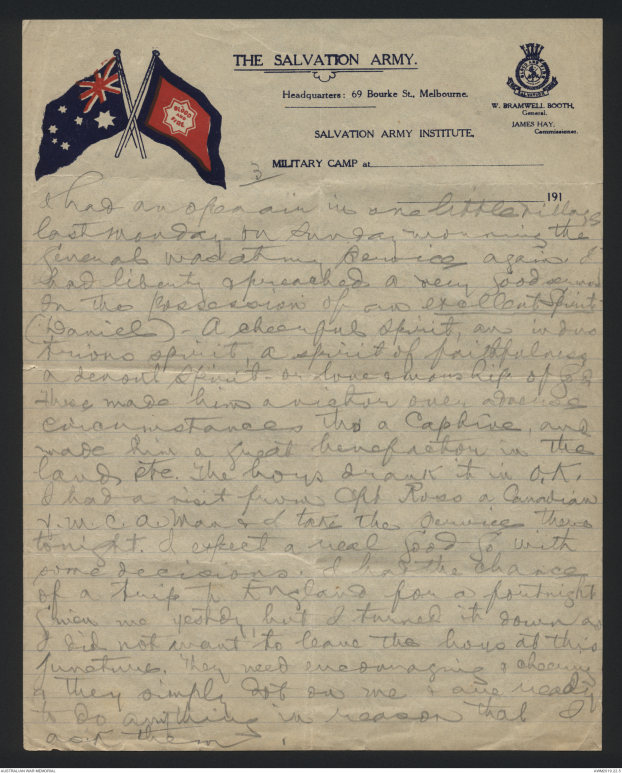 THE SALVATION ARMY.
Headquarters: 69 Bourke St., Melbourne.
W. BRAMWELL BOOTH,
General.
JAMES HAY,
Commissioner.
SALVATION ARMY INSTITUTE,
MILITARY CAMP at
3
191
BLOOD AND FIRE
I had an open air in one little village
last monday. on Sunday mourning the
General was at my service again. I
had liberty & preached a very good sermon
on the Possession of an excellent Spirit
(Daniel) - A cheerful spirit, an indus
trious spirit, a spirit of faithfulness
a devout spirit - or love & worship of God
These made him a victor over adverse
circumstances tho a Captive, and
made him a great benefactor in the
land etc. The boys drank it in O.K.
I had a visit from Cpt Ross a Canadian
Y.M.C.A. Man & I take the service there
tonight. I expect a real good go with
some decisions. I had the chance
of a trip to England for a fortnight
given me yestdy, but I turned it down as
I did not want to leave the boys at this
juncture. They need encouraging & cheering
& they simply dot on me & are ready
to do anything in reason that I
ask them.
AUSTRALIAN WAR MEMORIAL